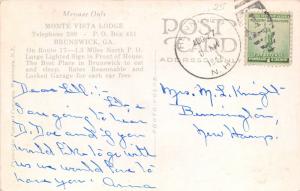 Message Only
MONTE VISTA LODGE
Telephone 280 - P. O. Box 421
BRUNSWICK, GA.
On Route 17—1.3 Miles North P. O.
Large Lighted Sign in Front of House
The Best Place in Brunswick to eat
and sleep. Rates Reasonable and
Locked Garage for each car free
POST
CARD
ADDRESS
25
Dear
are going to hear
D. Dox and if you
would like to go with
us we would love to
have you. Anna
Mrs. M. L. Knight
Bennington,
New Hamp.